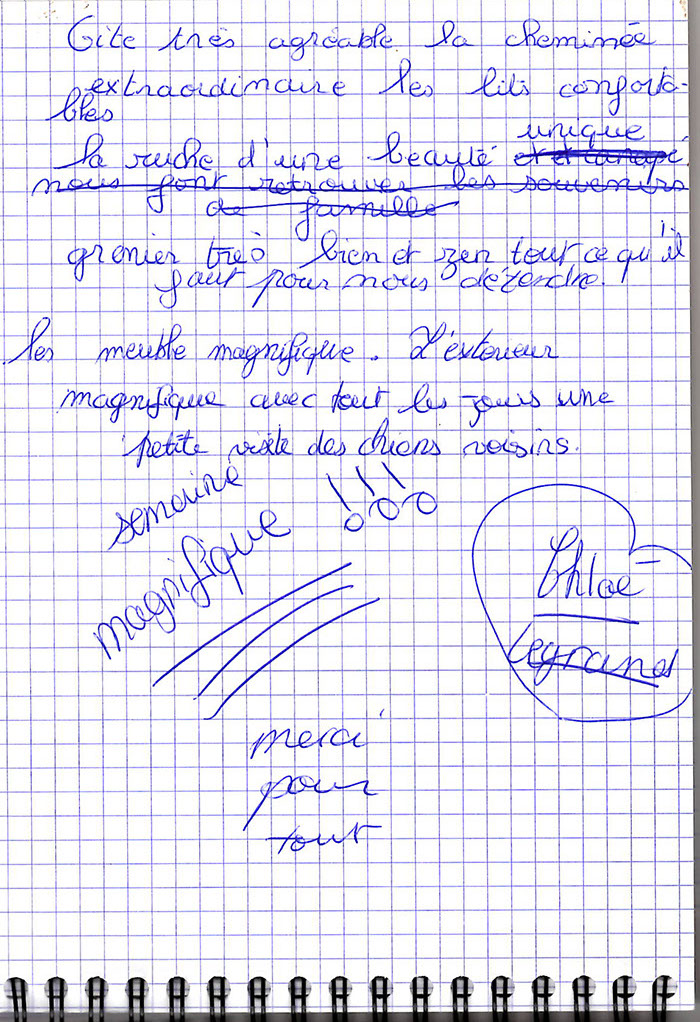 Gite très agréable. la cheminée
extraordinaire les lits conforta-
bles
la ruche d'une beauté unique
nous font retrouver les souvenirs
de famille
grenier très bien et zen tout ce qu'il
faut pour nous détendre.
les meuble magnifique. L'éxterieur
magnifique avec tout les jours une
petite visite des chiens voisins.
semaine
magnifique !!!
Chloé
Legrand
merci
pour
tout